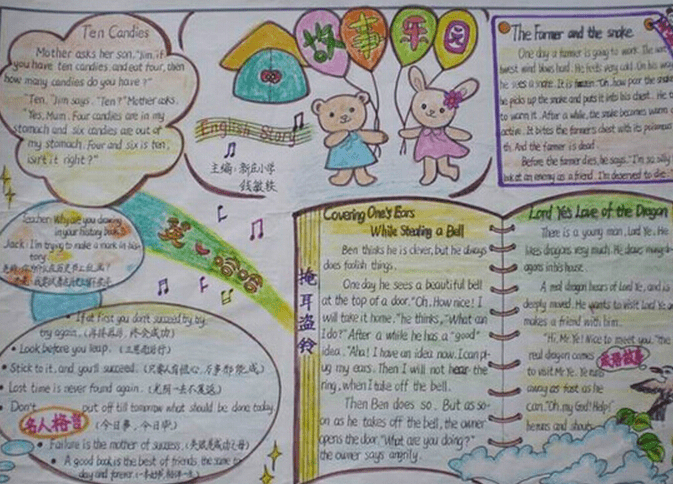 Ten Candies
Mother asks her son, "Jim, if
you have ten candies, and eat four, then
how many candies do you have?"
"Ten," Jim says. "Ten?" Mother asks.
Yes, Mum. Four candies are in my
stomach and six candies are out of
my stomach. Four and six is ten,
isn't it right?"
故事乐园
English Story
主编:新庄小学
钱敏轶
The Farmer and the snake
One day a farmer is going to work. The
west wind blows hard. He feels very cold. On his way
he sees a snake. It is frozen. "Oh, how poor the snake
he picks up the snake and puts it into his chest. He t
to warm it. After a while, the snake becomes warm
active. It bites the farmer's chest with its poisonous
th. And the farmer is dead.
Before the farmer dies, he says, "I'm so silly
look at an enemy as a friend. I'm deserved to die
Teacher: Why are you drawing
in your history book?
Jack: I'm trying to make a mark in his
tory.
英哈哈
If at first you don't succeed, try, try
try again. (再接再厉,终会成功)
Look before you leap. (三思而后行)
Stick to it, and you'll succeed. (只要人有恒心,万事都能成)
Lost time is never found again. (光阴一去不复返)
Don't put off till tomorrow what should be done today.
名人格言 (今日事,今日毕)
Failure is the mother of success. (失败是成功之母)
A good book is the best of friends, the same to
day and forever.
掩耳盗铃
Covering One's Ears
While Stealing a Bell
Ben thinks he is clever, but he always
does foolish things.
One day he sees a beautiful bell
at the top of a door. "Oh, How nice! I
will take it home," he thinks, "What can
I do?" After a while he has a "good"
idea. "Aha! I have an idea now. I can pl-
ug my ears. Then I will not hear the
ring, when I take off the bell.
Then Ben does so. But as so-
on as he takes off the bell, the owner
opens the door, "What are you doing?"
the owner says angrily.
Lord Ye's Love of the Dragon
There is a young man, Lord Ye. He
likes dragons very much. He draws many dr-
agons in his house.
A real dragon hears of Lord Ye, and is
deeply moved. He wants to visit Lord Ye an
makes a friend with him.
"Hi, Mr Ye! Nice to meet you," the
real dragon comes
to visit Mr Ye. Ye runs
成语故事
away as fast as he
can. "Oh, my God! Help!"
he runs and shouts.